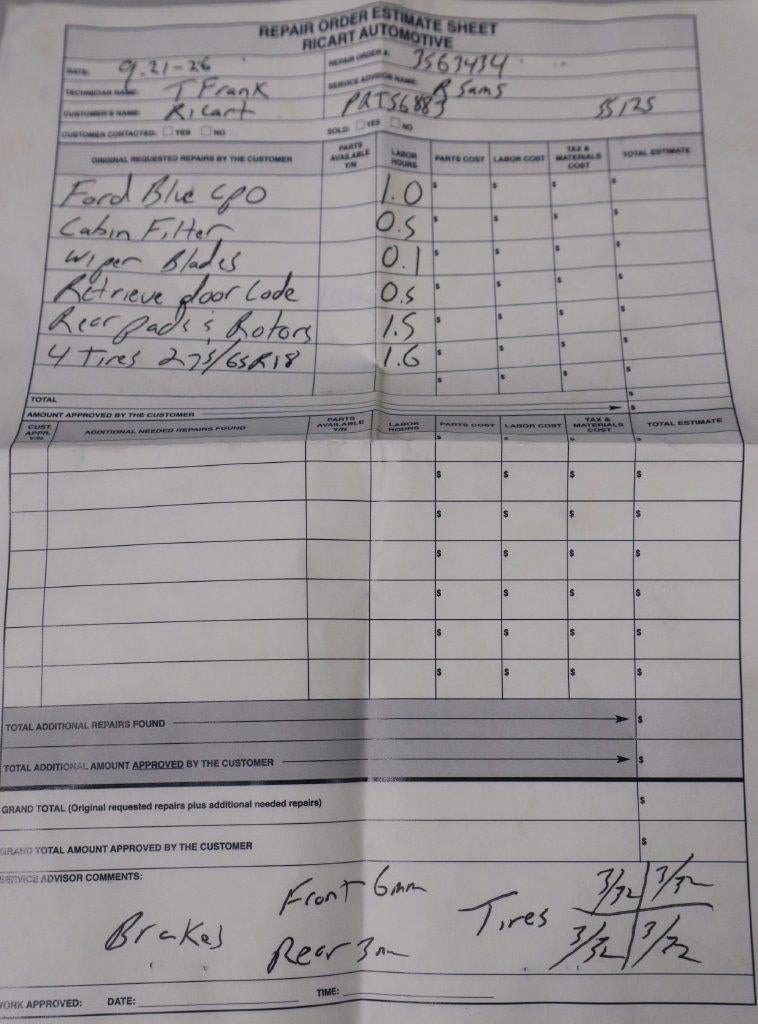 REPAIR ORDER ESTIMATE SHEET
RICART AUTOMOTIVE
DATE: 9-21-26 REPAIR ORDER #: 3563434
TECHNICIAN NAME: T Frank SERVICE ADVISOR NAME: R Sams
CUSTOMER'S NAME: Ricart PRTS6883 55125
CUSTOMER CONTACTED: YES NO SOLD: YES NO
ORIGINAL REQUESTED REPAIRS BY THE CUSTOMER PARTS AVAILABLE Y/N LABOR HOURS PARTS COST LABOR COST TAX & MATERIALS COST TOTAL ESTIMATE
Ford Blue CPO 1.0 $ $ $ $
Cabin Filter 0.5 $ $ $ $
Wiper Blades 0.1 $ $ $ $
Retrieve door Code 0.5 $ $ $ $
Rear pads & Rotors 1.5 $ $ $ $
4 Tires 275/65R18 1.6 $ $ $ $
$ $ $ $
TOTAL $
AMOUNT APPROVED BY THE CUSTOMER $
CUST. APPR. Y/N ADDITIONAL NEEDED REPAIRS FOUND PARTS AVAILABLE Y/N LABOR HOURS PARTS COST LABOR COST TAX & MATERIALS COST TOTAL ESTIMATE
$ $ $ $
$ $ $ $
$ $ $ $
$ $ $ $
$ $ $ $
$ $ $ $
$ $ $ $
TOTAL ADDITIONAL REPAIRS FOUND $
TOTAL ADDITIONAL AMOUNT APPROVED BY THE CUSTOMER $
GRAND TOTAL (Original requested repairs plus additional needed repairs) $
GRAND TOTAL AMOUNT APPROVED BY THE CUSTOMER $
SERVICE ADVISOR COMMENTS:
Front 6mm 3/32 3/32
Brakes Tires
Rear 3m 3/32 3/32
WORK APPROVED: DATE: TIME: